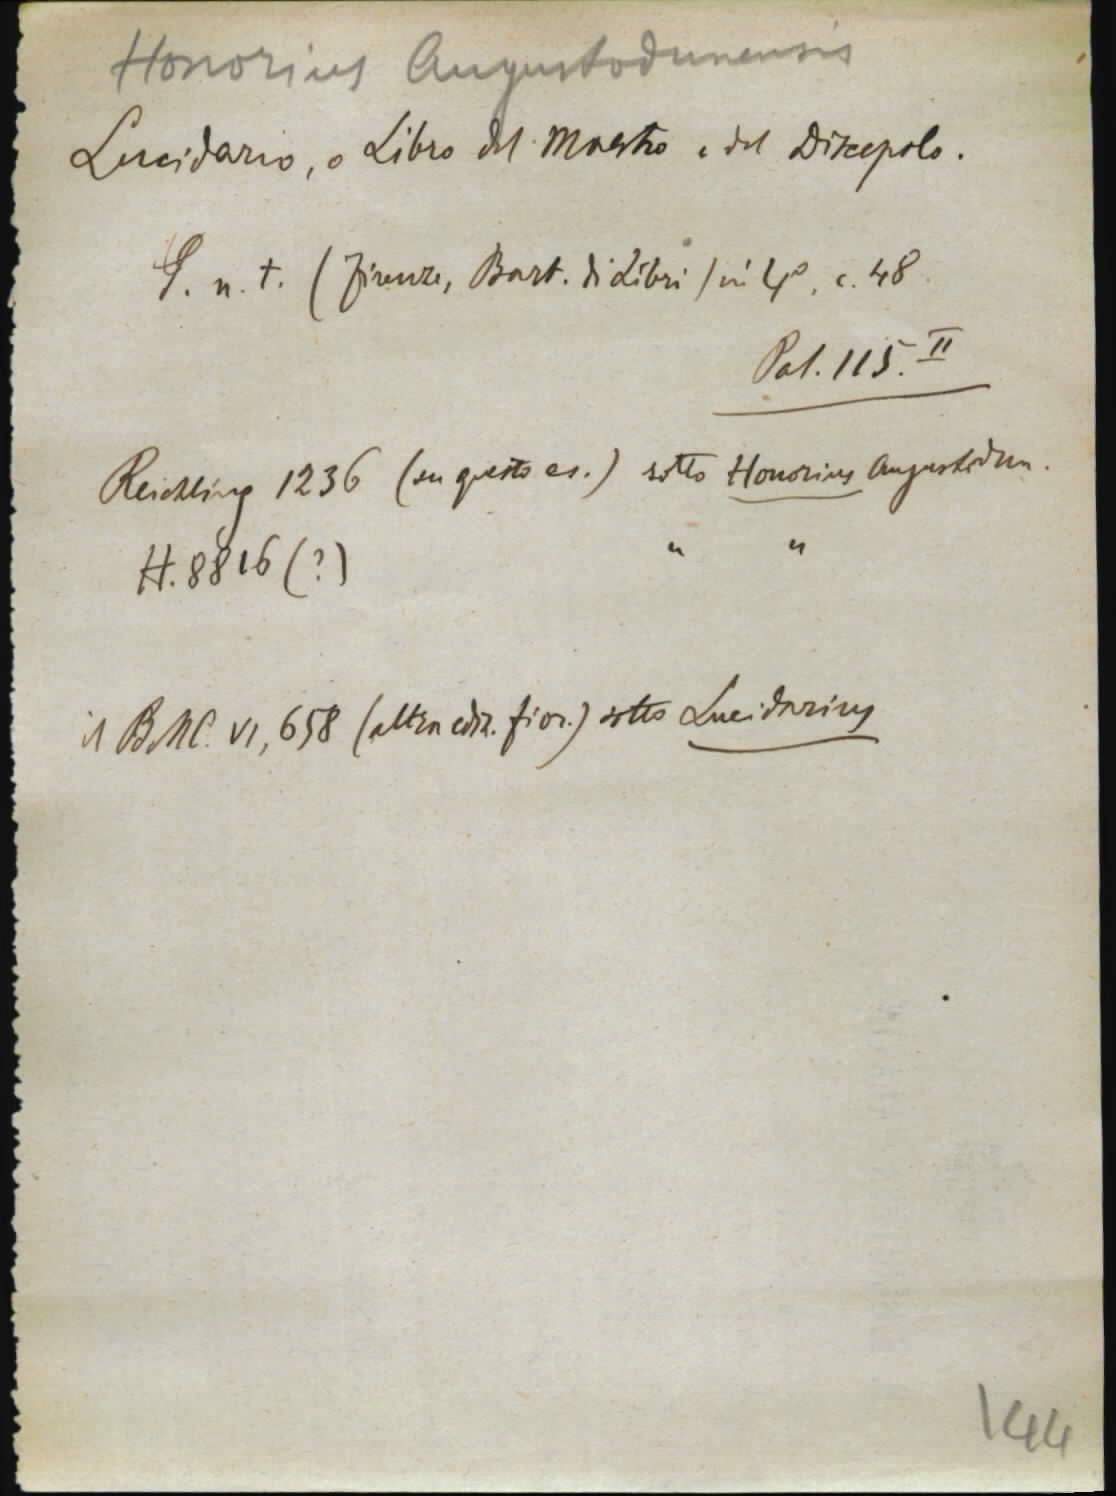 Honorius Augustodunensis
Lucidario, o Libro del Maestro e del Discepolo.
S. n. t. (Firenze, Bart. di Libri) in 4º, c. 48
Pal. 115.II
Reichling 1236 (su questo es.) sotto Honorius Augustodun.
H. 8816 (?) " "
il BMC. VI, 658 (altra ediz. fior.) sotto Lucidarius
144